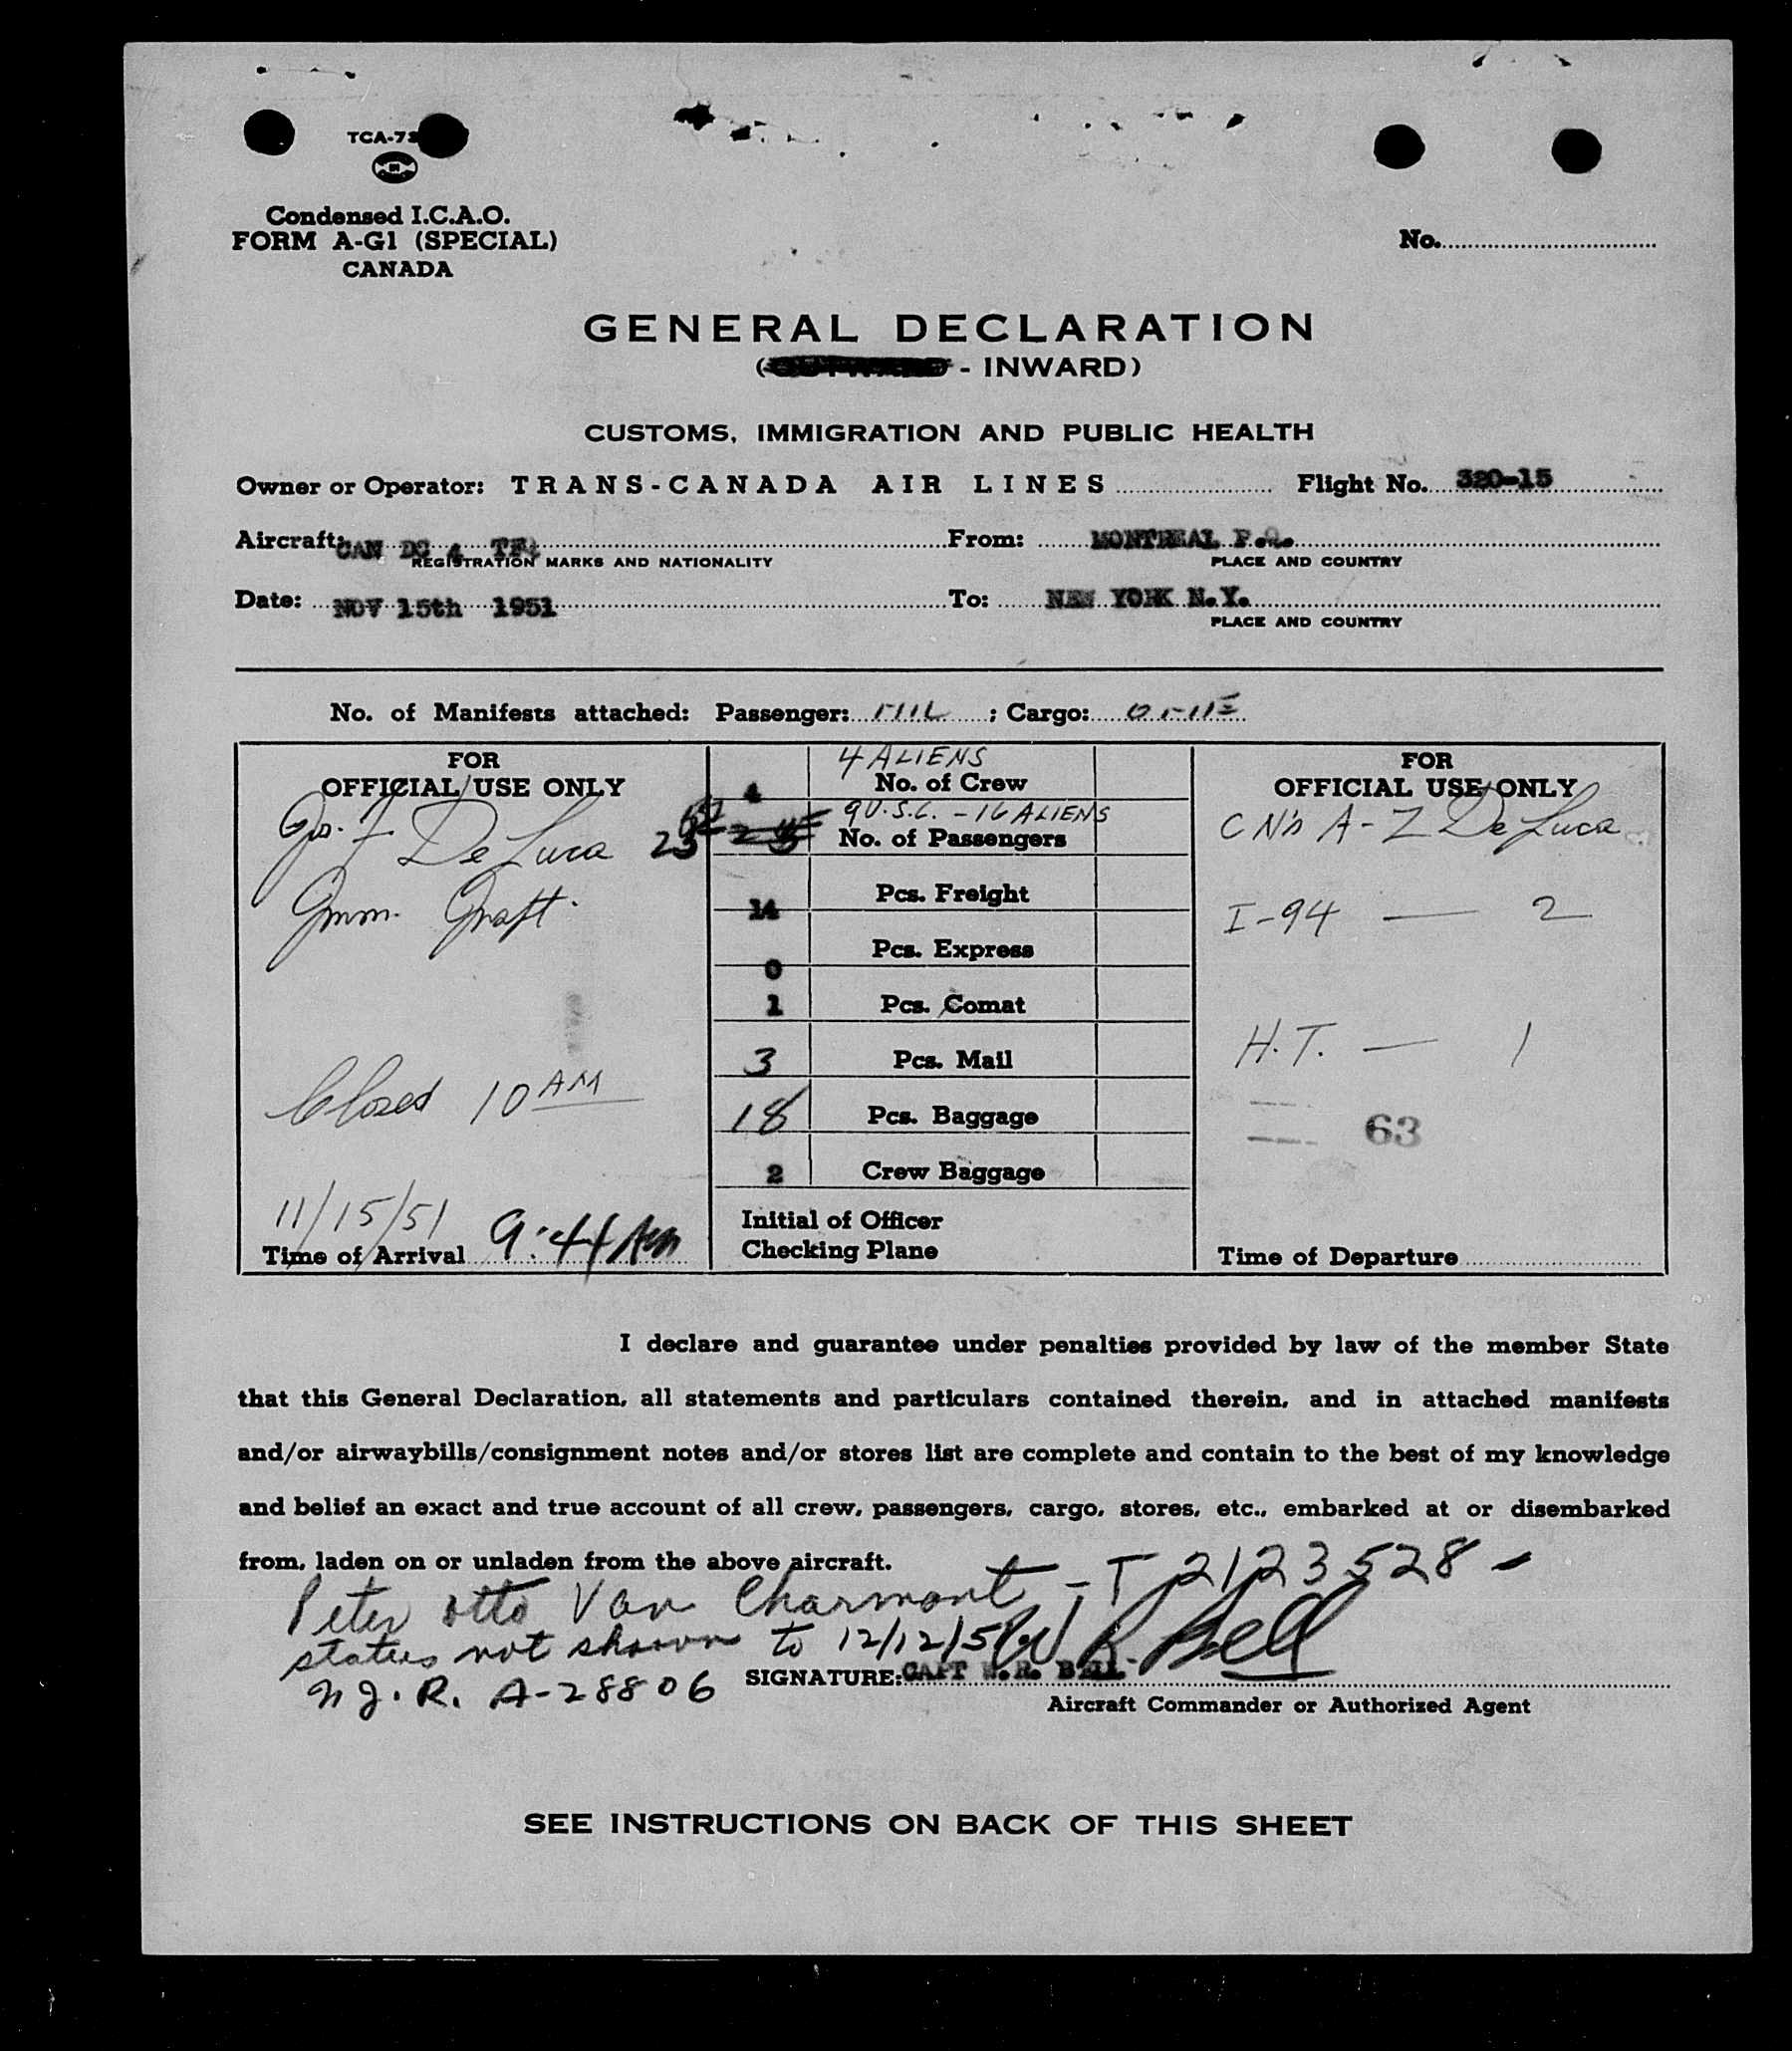 TCA-73
Condensed I.C.A.O.
FORM A-G1 (SPECIAL)
CANADA
No.
GENERAL DECLARATION
( - INWARD)
CUSTOMS, IMMIGRATION AND PUBLIC HEALTH
Owner or Operator: TRANS-CANADA AIR LINES Flight No. 320-15
Aircraft: CAN DC 4 From: MONTREAL P.Q.
REGISTRATION MARKS AND NATIONALITY PLACE AND COUNTRY
Date: NOV 15th 1951 To: NEW YORK N.Y.
PLACE AND COUNTRY
No. of Manifests attached: Passenger: NIL ; Cargo: ONE
FOR
OFFICIAL USE ONLY
De Luca
Imm. Insp't.
Closed 10 AM
11/15/51
Time of Arrival 9:44 Am
4 ALIENS
4 No. of Crew
9 U.S.C. - 16 ALIENS
No. of Passengers
14 Pcs. Freight
0 Pcs. Express
1 Pcs. Comat
3 Pcs. Mail
18 Pcs. Baggage
2 Crew Baggage
Initial of Officer
Checking Plane
FOR
OFFICIAL USE ONLY
CN's A-Z De Luca
I-94 — 2
H.T. — 1
63
Time of Departure
I declare and guarantee under penalties provided by law of the member State
that this General Declaration, all statements and particulars contained therein, and in attached manifests
and/or airwaybills/consignment notes and/or stores list are complete and contain to the best of my knowledge
and belief an exact and true account of all crew, passengers, cargo, stores, etc., embarked at or disembarked
from, laden on or unladen from the above aircraft.
Peter Otto Van Charmont - T 2123528 -
status not shown to 12/12/51 W R Bell
N.J.R. A-28806 SIGNATURE: CAPT W.R. BELL
Aircraft Commander or Authorized Agent
SEE INSTRUCTIONS ON BACK OF THIS SHEET